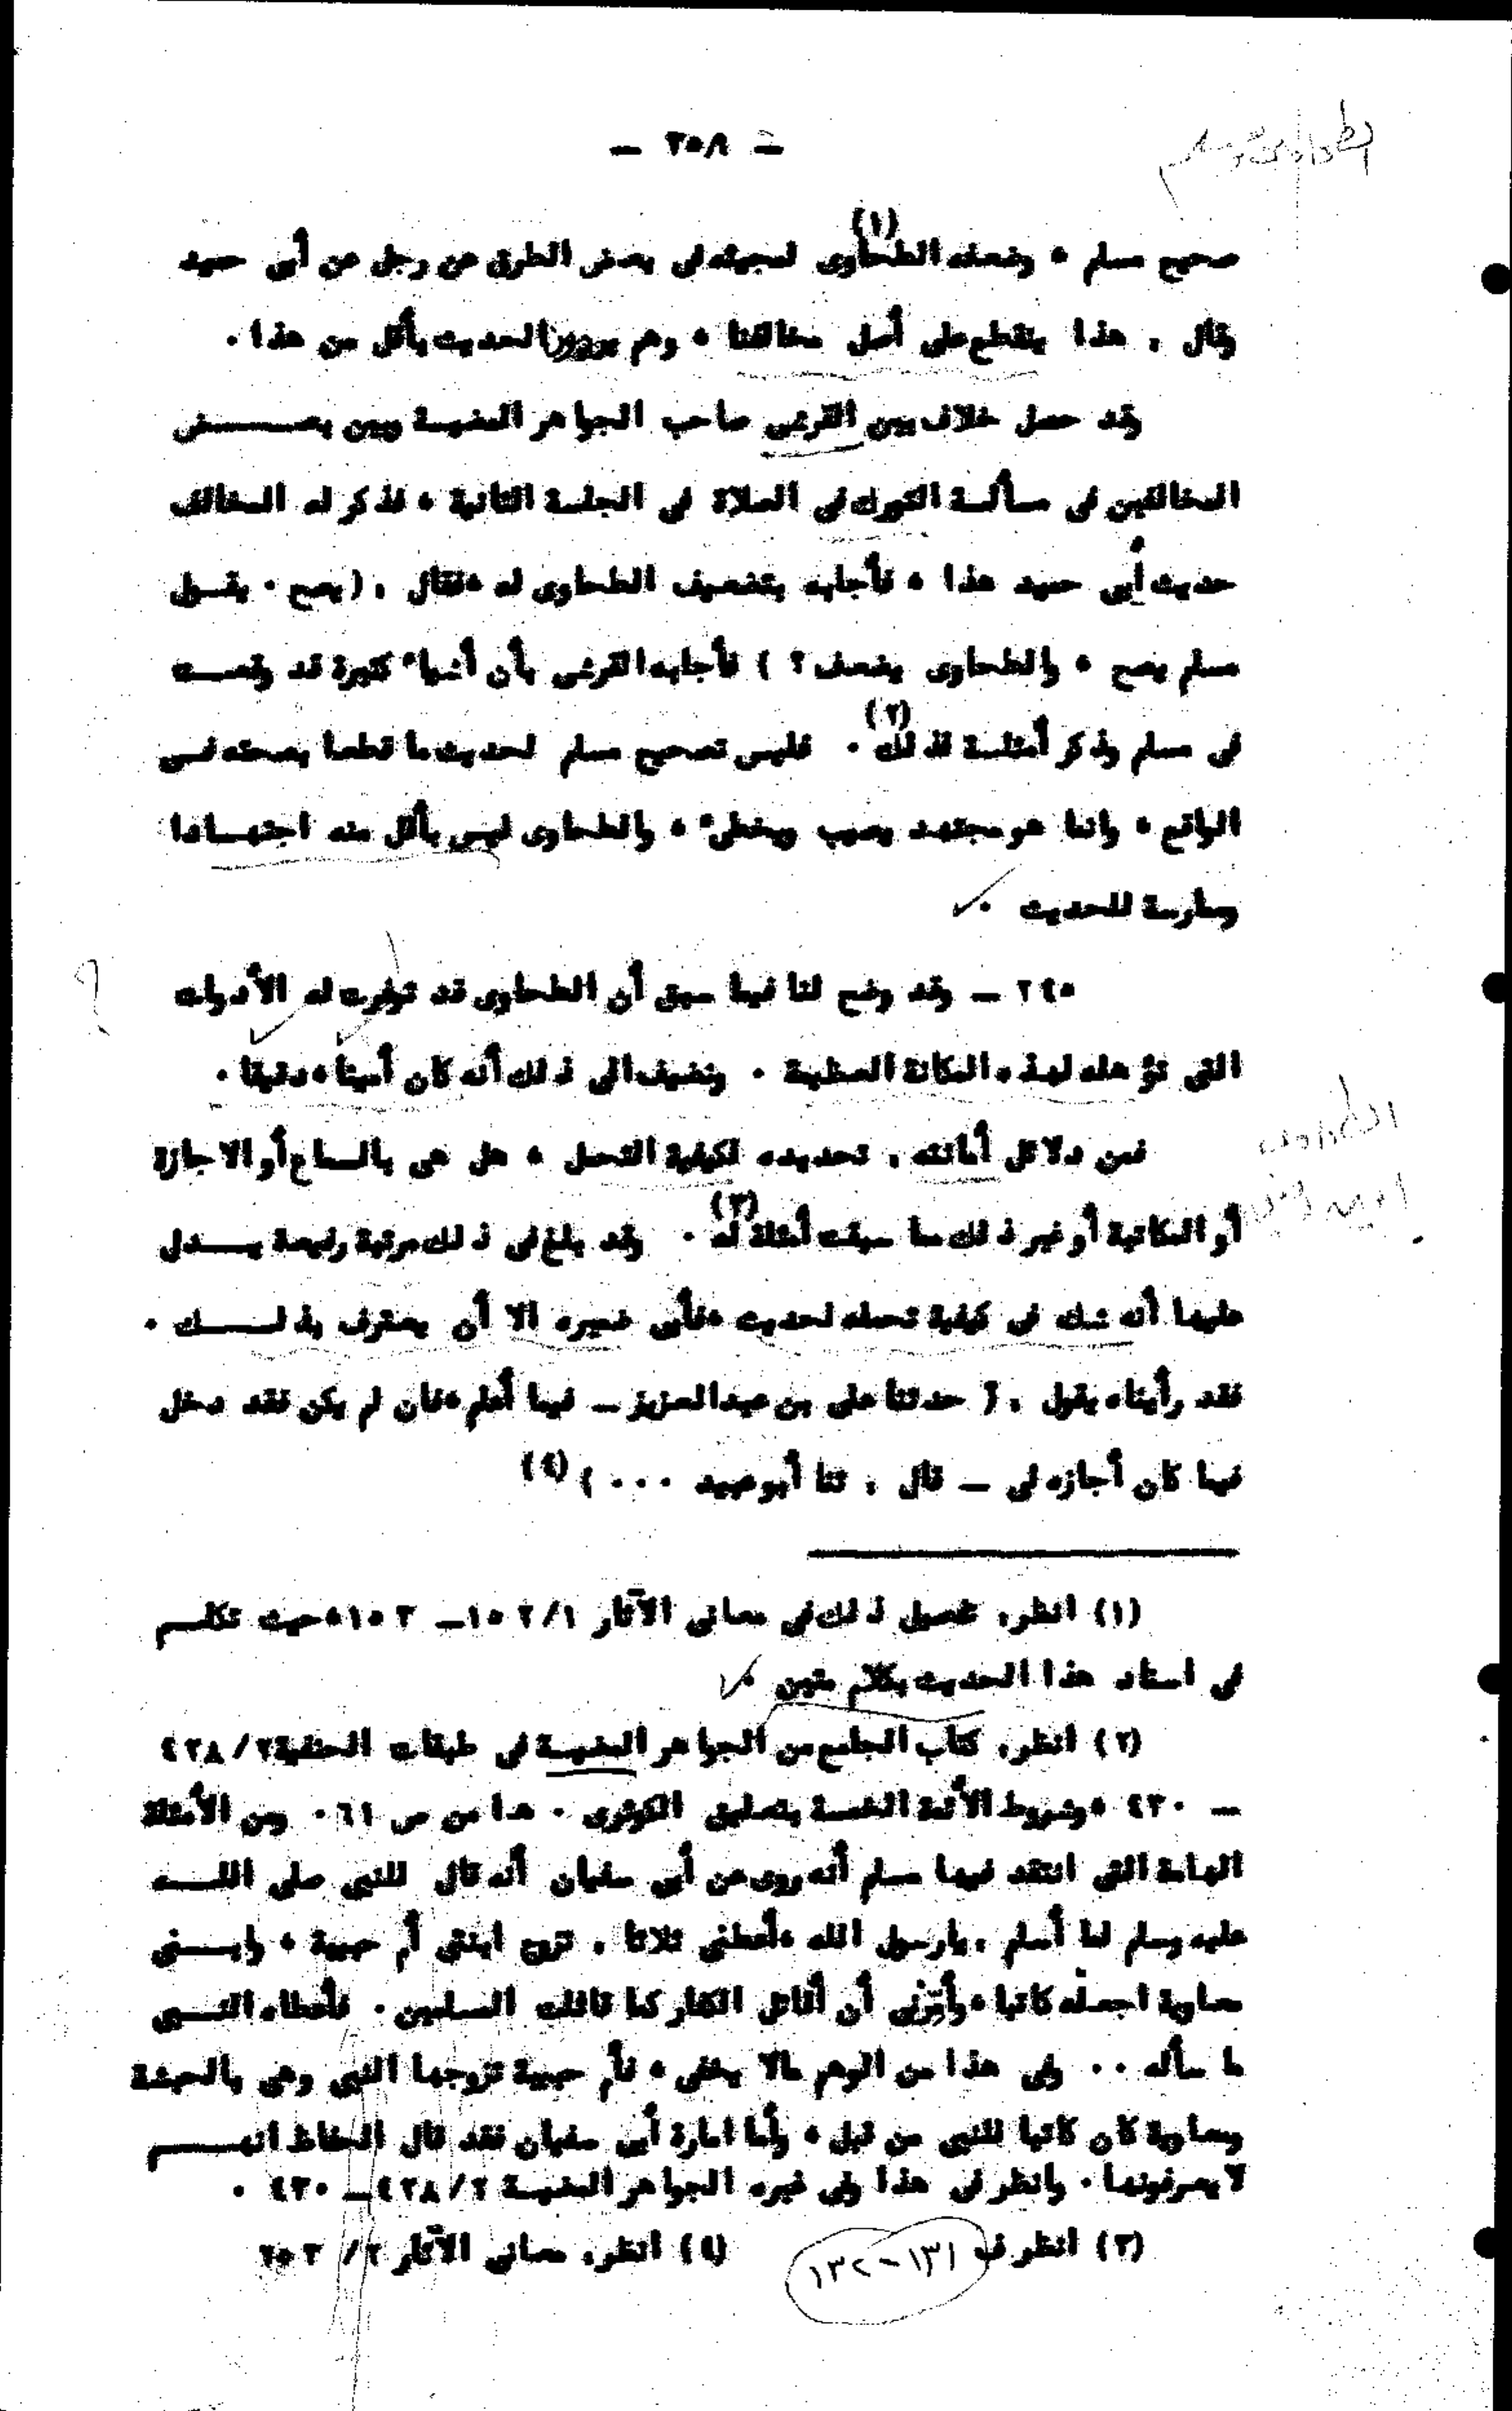 - ٢٥٨ -
صحيح مسلم ، وضعفه الطحاوى (١) لمجيئه فى بعض الطرق عن رجل عن أبى حميد
وقال ، هذا ينقطع على أصل مخالفنا ، وهم يردون الحديث بأقل من هذا .
وقد حصل خلاف بين القرشى صاحب الجواهر المضيـة وبين بعــــض
المخالفين فى مسألـة التورك فى الصلاة فى الجلسة الثانية ، فذكر له المخالف
حديث أبى حميد هذا ، فأجابه بتضعيف الطحاوى له ،فقال ، ( يصح . يقـول
مسلم يصح ، والطحاوى يضعف ؟ ) فأجابه القرشى بأن أشياء كثيرة قد وقعـت
فى مسلم وذكر أمثلـة لذلك (٢) . فليس تصحيح مسلم لحديث ما قطعا بصحته فـى
الواقع ، وانما هو مجتهد يصيب ويخطىء ، والطحاوى ليس بأقل منه اجتهـادا
وممارسة للحديث .
٢٤٥ - وقد وضح لنا فيما سبق أن الطحاوى قد توفرت له الأدوات
التى تؤهله لهذه المكانة العظيمة . ونضيف الى ذلك أنه كان أمينا ، دقيقا .
فمن دلائل أمانته ، تحديده لكيفية التحمل ، هل هى بالسماع أو الاجازة
أو المكاتبة أو غير ذلك مما سبقت أمثلة له (٣) . وقد بلغ فى ذلك مرتبة رفيعة يــدل
عليها أنه شك فى كيفية تحمله لحديث ،فأبى ضميره الا أن يعترف بذلــــك .
فقد رأيناه يقول . ( حدثنا على بن عبدالعزيز - فيما أعلم ،فان لم يكن فقد دخل
فيما كان أجازه لى - قال ، ثنا أبو عبيد ... ) (٤)
(١) انظر، تفصيل ذلك فى معانى الآثار ١/ ١٥٢ - ١٥٣ ،حيث تكلـم
فى اسناد هذا الحديث بكلام متين .
(٢) انظر، كتاب الجامع من الجواهر المضيـة فى طبقات الحنفية ٢/ ٤٢٨
- ٤٣٠ ،وشروط الأئمة الخمسة بتعليق الكوثرى . هامش ص ٦١ . ومن الأمثلة
الهامة التى انتقد فيها مسلم أنه روى عن أبى سفيان أنه قال للنبى صلى اللـه
عليه وسلم لما أسلم ، يارسول الله ،أعطنى ثلاثا ، تزوج ابنتى أم حبيبة ، وابـنى
معاوية اجعله كاتبا ،وأمِّرنى أن أقاتل الكفار كما قاتلت المسلمين . فأعطاه النـبى
ما سأله .. وفى هذا من الوهم مالا يخفى ، فأم حبيبة تزوجها النبى وهى بالحبشة
ومعاوية كان كاتبا للنبى من قبل ، وأما امارة أبى سفيان فقد قال الحفاظ انهــم
لا يعرفونها . وانظر فى هذا وفى غيره الجواهر المضيـة ٢/ ٤٢٨ - ٤٣٠ .
(٣) انظر ف ١٣١ - ١٣٢ (٤) انظر، معانى الآثار ٢/ ٢٥٣